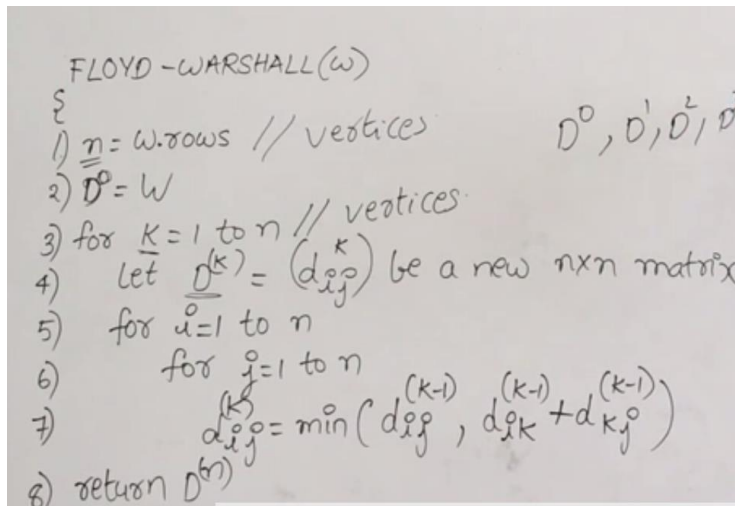 FLOYD-WARSHALL(W)
{
1) n = W.rows // vertices
D⁰, D¹, D²,
2) D⁰ = W
3) for K = 1 to n // vertices
4) Let D⁽ᵏ⁾ = (dᵢⱼᵏ) be a new nxn matrix
5) for i=1 to n
6) for j=1 to n
7) dᵢⱼ⁽ᵏ⁾ = min(dᵢⱼ⁽ᵏ⁻¹⁾, dᵢₖ⁽ᵏ⁻¹⁾ + dₖⱼ⁽ᵏ⁻¹⁾)
8) return D⁽ⁿ⁾